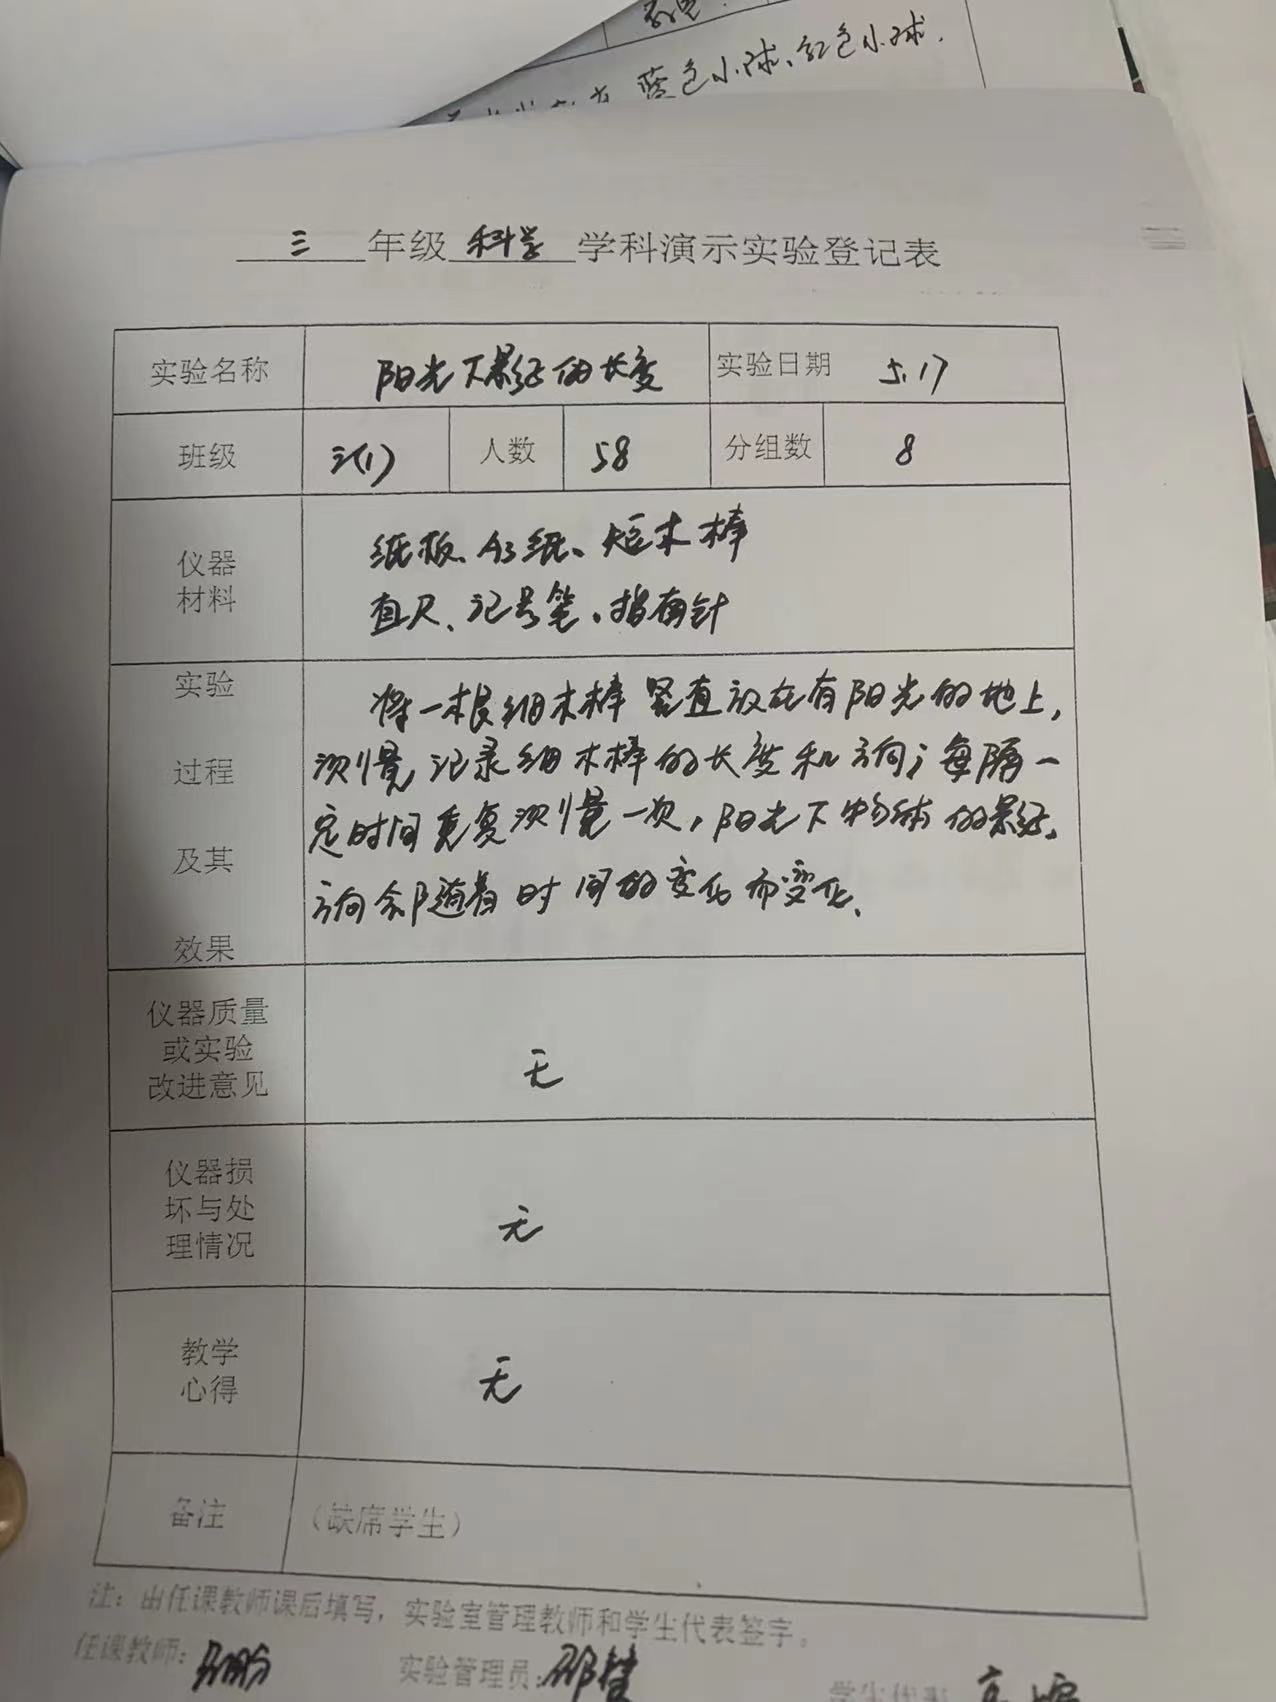 蓝色小球、红色小球.
三 年级 科学 学科演示实验登记表
实验名称 阳光下影子的长度 实验日期 5.17
班级 三(1) 人数 58 分组数 8
仪器
材料
纸板、A3纸、短木棒
直尺、记号笔、指南针
实验
过程
及其
效果
将一根细木棒竖直放在有阳光的地上,
测量,记录细木棒的长度和方向;每隔一
定时间重复测量一次,阳光下物体的影子
方向会随着时间的变化而变化.
仪器质量
或实验
改进意见
无
仪器损
坏与处
理情况
无
教学
心得
无
备注 (缺席学生)
注:由任课教师课后填写,实验室管理教师和学生代表签字。
任课教师: 实验管理员: 学生代表